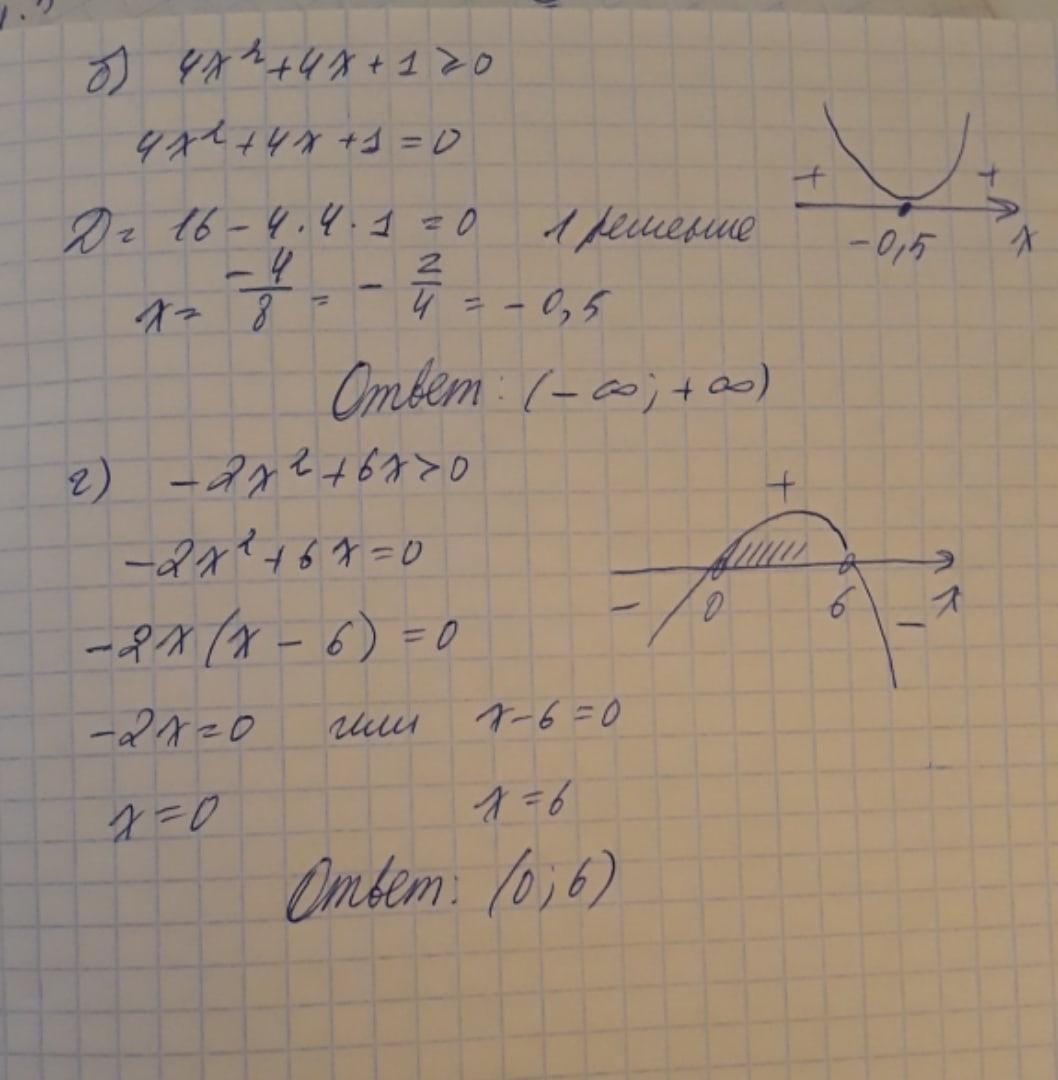 б) 4x² + 4x + 1 ≥ 0
4x² + 4x + 1 = 0
+ +
-0,5 x
D = 16 - 4 · 4 · 1 = 0 1 решение
x = -4/8 = - 2/4 = - 0,5
Ответ: (- ∞; + ∞)
г) -2x² + 6x > 0
+
-2x² + 6x = 0
- 0 6 - x
-2x (x - 6) = 0
-2x = 0 или x - 6 = 0
x = 0 x = 6
Ответ: (0; 6)